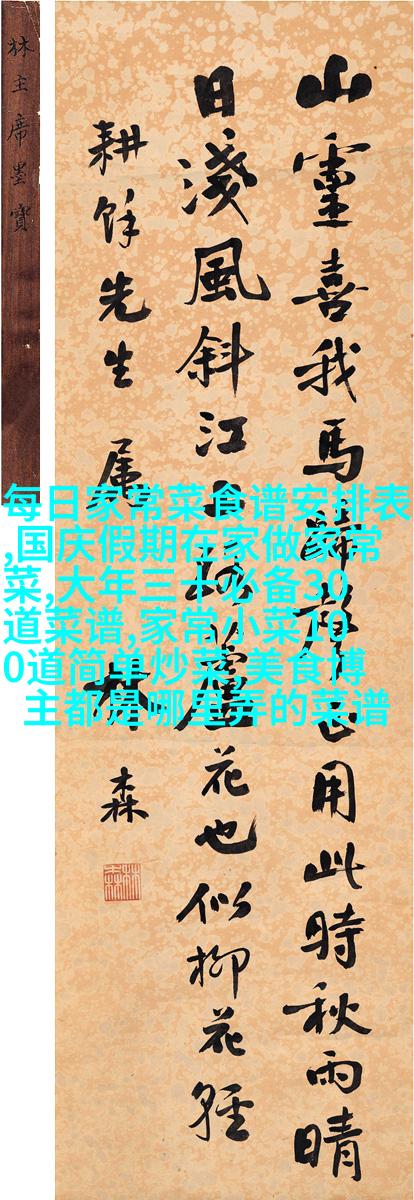 山靈喜我馬蹄聲正用此時秋雨晴
日淺風斜江上路蘆花也似柳花輕
耕餘先生 属
林森
林主席墨寶
每日家常菜食谱安排表
,国庆假期在家做家常
菜,大年三十必备30
道菜谱,家常小菜10
0道简单炒菜,美食博
主都是哪里弄的菜谱